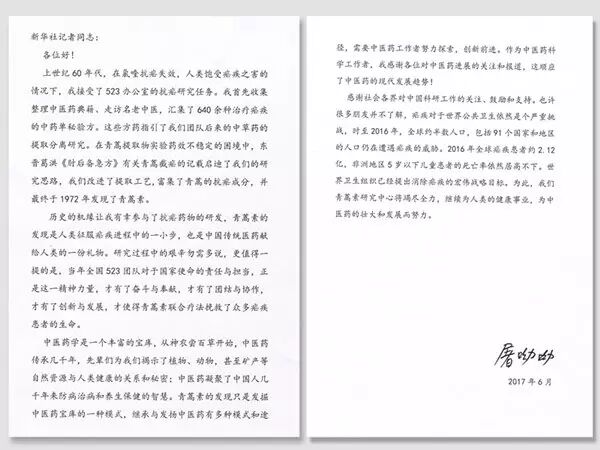 新华社记者同志:
各位好!
上世纪 60 年代，在氯喹抗疟失效，人类饱受疟疾之害的
情况下，我接受了 523 办公室的抗疟研究任务。我首先收集
整理中医药典籍、走访名老中医，汇集了 640 余种治疗疟疾
的中药单秘验方。这些方药指引了我们团队后来的中草药的
提取分离研究。在青蒿提取物实验药效不稳定的困境中，东
晋葛洪《肘后备急方》有关青蒿截疟的记载启迪了我们的研
究思路，我们改进了提取工艺，富集了青蒿的抗疟成分，并
最终于 1972 年发现了青蒿素。
历史的机缘让我有幸参与了抗疟药物的研发，青蒿素的
发现是人类征服疟疾进程中的一小步，也是中国传统医药献
给人类的一份礼物。研究过程中的艰辛勿需多说，更值得一
提的是，当年全国 523 团队对于国家使命的责任与担当，正
是这一精神力量，才有了奋斗与奉献，才有了团结与协作，
才有了创新与发展，才使得青蒿素联合疗法挽救了众多疟疾
患者的生命。
中医药学是一个丰富的宝库，从神农尝百草开始，中医药
传承几千年，先辈们为我们揭示了植物、动物，甚至矿产等
自然资源与人类健康的关系和秘密；中医药凝聚了中国人几
千年来防病治病和养生保健的智慧。青蒿素的发现只是发掘
中医药宝库的一种模式，继承与发扬中医药有多种模式和途
径，需要中医药工作者努力探索，创新前进。作为中医药科
学工作者，我感谢各位对中医药进展的关注和报道，这顺应
了中医药的现代发展趋势！
感谢社会各界对中国科研工作的关注、鼓励和支持。也许
很多朋友并不了解，疟疾对于世界公共卫生依然是个严重挑
战，时至 2016 年，全球约半数人口，包括 91 个国家和地区
的人口约在遭遇疟疾的威胁。2016 年全球疟疾患者约 2.12
亿，非洲地区 5 岁以下儿童患者的死亡率依然居高不下。世
界卫生组织已经提出消除疟疾的宏伟战略目标。为此，我们
青蒿素研究中心将竭尽全力，继续为人类的健康事业，为中
医药的壮大和发展而努力。
屠呦呦
2017 年 6 月